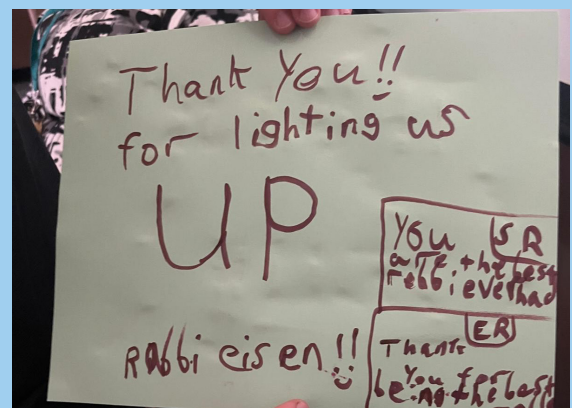 Thank You!!
for lighting us
UP
Rabbi eisen!!
You SR
are the best
rebbi ever had
ER
Thank
You for
being the best